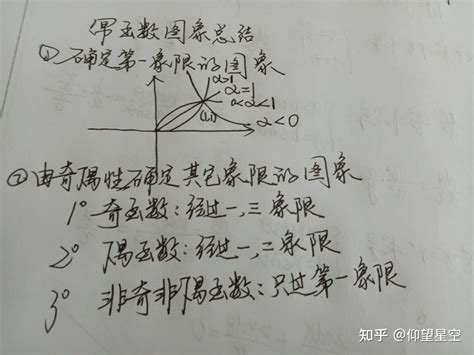 幂函数图象总结
①确定第一象限的图象
α>1
α=1
0<α<1
(1,1)
α<0
②由奇偶性确定其它象限的图象
1° 奇函数:经过一,三象限
2° 偶函数:经过一,二象限
3° 非奇非偶函数:只过第一象限
知乎 @仰望星空